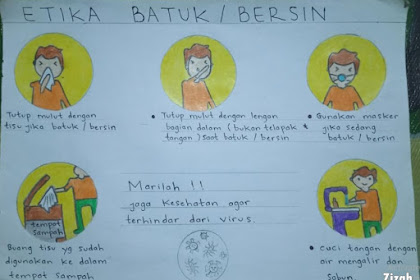 ETIKA BATUK / BERSIN
Tutup mulut dengan
tisu jika batuk / bersin
• Tutup mulut dengan lengan
bagian dalam (bukan telapak
tangan) saat batuk / bersin
• Gunakan masker
jika sedang
batuk / bersin
tempat
Sampah
Buang tisu yg sudah
digunakan ke dalam
tempat sampah
Marilah !!
jaga kesehatan agar
terhindar dari virus.
• Cuci tangan dengan
air mengalir dan
Sabun.
Zizah